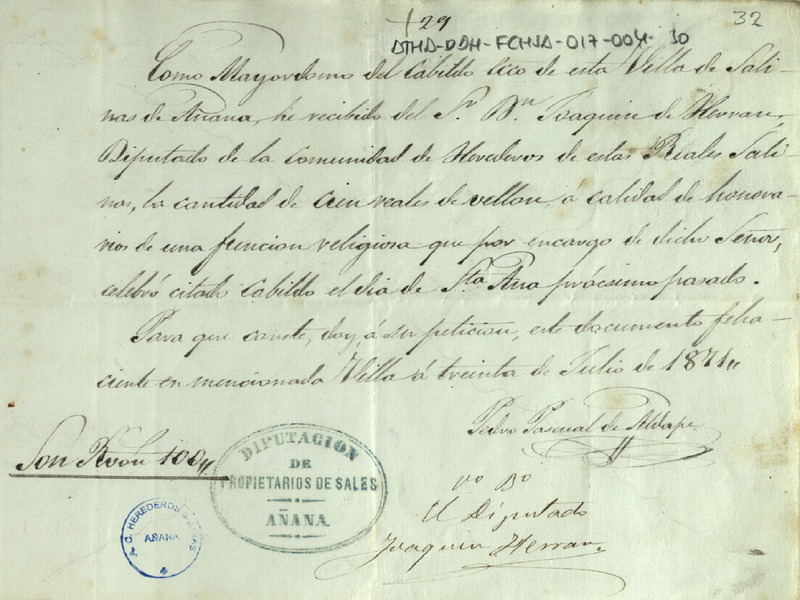 29
32
DTHA-DDH-FCHSA-017-004-10
Como Mayordomo del Cabildo Ecco de esta Villa de Sali-
nas de Añana, he recibido del Sr. Dn. Joaquin de Herran,
Diputado de la comunidad de Herederos de estas Reales Sali-
nas, la cantidad de cien reales de vellon, á calidad de honora-
rios de una funcion religiosa que por encargo de dicho Señor,
celebró citado Cabildo el dia de Sta Ana prócsimo pasado.
Para que conste, doy, á su peticion, este documento feha-
ciente en mencionada Villa á treinta de Julio de 1871,,
Pedro Pascual de Aldape
Son Rvon 100,,
DIPUTACION
DE
PROPIETARIOS DE SALES
AÑANA
Vo Bo
El Diputado
Joaquin Herran
C. HEREDEROS
AÑANA